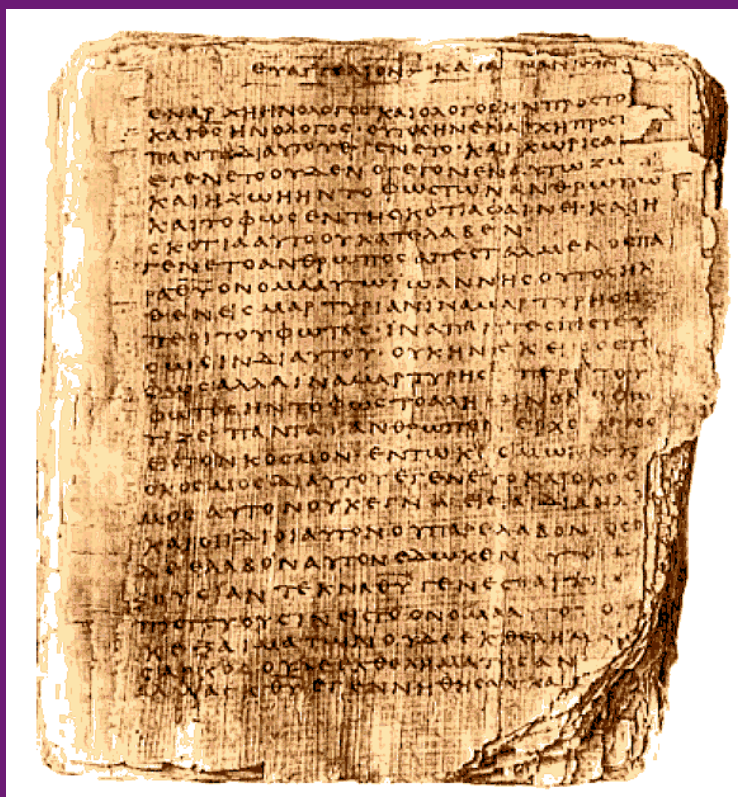 ΕΥΑΓΓΕΛΙΟΝ ΚΑΤΑ
ΕΝΑΡΧΗΗΝΟΛΟΓΟϹΚΑΙΟΛΟΓΟϹΗΝΠΡΟϹΤΟ
ΚΑΙΘϹΗΝΟΛΟΓΟϹ·ΟΥΤΟϹΗΝΕΝΑΡΧΗΠΡΟϹΤ
ΠΑΝΤΑΔΙΑΥΤΟΥΕΓΕΝΕΤΟ·ΚΑΙΧΩΡΙϹΑ
ΕΓΕΝΕΤΟΟΥΔΕΝΟΓΕΓΟΝΕΝΑΥΤΩΖΩ
ΚΑΙΗΖΩΗΗΝΤΟΦΩϹΤΩΝΑΝΘΡΩΠΩ
ΚΑΙΤΟΦΩϹΕΝΤΗϹΚΟΤΙΑΦΑΙΝΕΙ·ΚΑΙΗ
ϹΚΟΤΙΑΑΥΤΟΟΥΚΑΤΕΛΑΒΕΝ·
ΓΕΝΕΤΟΑΝΘΡΩΠΟϹΑΠΕϹΤΑΛΜΕΝΟϹΠΑ
ΡΑΘΥΟΝΟΜΑΑΥΤΩΙΩΑΝΝΗϹΟΥΤΟϹΗΛ
ΘΕΝΕΙϹΜΑΡΤΥΡΙΑΝΙΝΑΜΑΡΤΥΡΗϹΗ
ΠΕΡΙΤΟΥΦΩΤΟϹ·ΙΝΑΠΑΝΤΕϹΠΙϹΤΕΥ
ϹΩϹΙΝΔΙΑΥΤΟΥ·ΟΥΚΗΝΕΚΕΙΝΟϹΤΟ
ΦΩϹΑΛΛΑΙΝΑΜΑΡΤΥΡΗϹΗΠΕΡΙΤΟΥ
ΦΩΤΟϹΗΝΤΟΦΩϹΤΟΑΛΗΘΙΝΟΝΟΦΩ
ΤΙΖΕΙΠΑΝΤΑΑΝΘΡΩΠΟΝΕΡΧΟ
ΕΙϹΤΟΝΚΟϹΜΟΝ·ΕΝΤΩΚΟϹΜΩΗΝΚΑΙ
ΟΚΟϹΜΟϹΔΙΑΥΤΟΥΕΓΕΝΕΤΟΚΑΙΟΚΟϹ
ΜΟϹΑΥΤΟΝΟΥΚΕΓΝΩΕΙϹΤΑΙΔΙΑΗΛΘ
ΚΑΙΟΙΙΔΙΟΙΑΥΤΟΝΟΥΠΑΡΕΛΑΒΟΝΟϹΟΙ
ΔΕΕΛΑΒΟΝΑΥΤΟΝΕΔΩΚΕΝΑΥΤΟΙϹ
ΟΥϹΙΑΝΤΕΚΝΑΘΥΓΕΝΕϹΘΑΙΤΟΙϹ
ΠΙϹΤΕΥΟΥϹΙΝΕΙϹΤΟΟΝΟΜΑΑΥΤΟΥΟ
ΚΕΞΑΙΜΑΤΩΝΟΥΔΕΕΚΘΕΛΗΜΑ
ϹΑΡΚΟϹΟΥΔΕΕΚΘΕΛΗΜΑΤΟϹΑΝ
ΑΛΛΑΕΚΘΥΕΓΕΝΝΗΘΗϹΑΝΚΑΙ